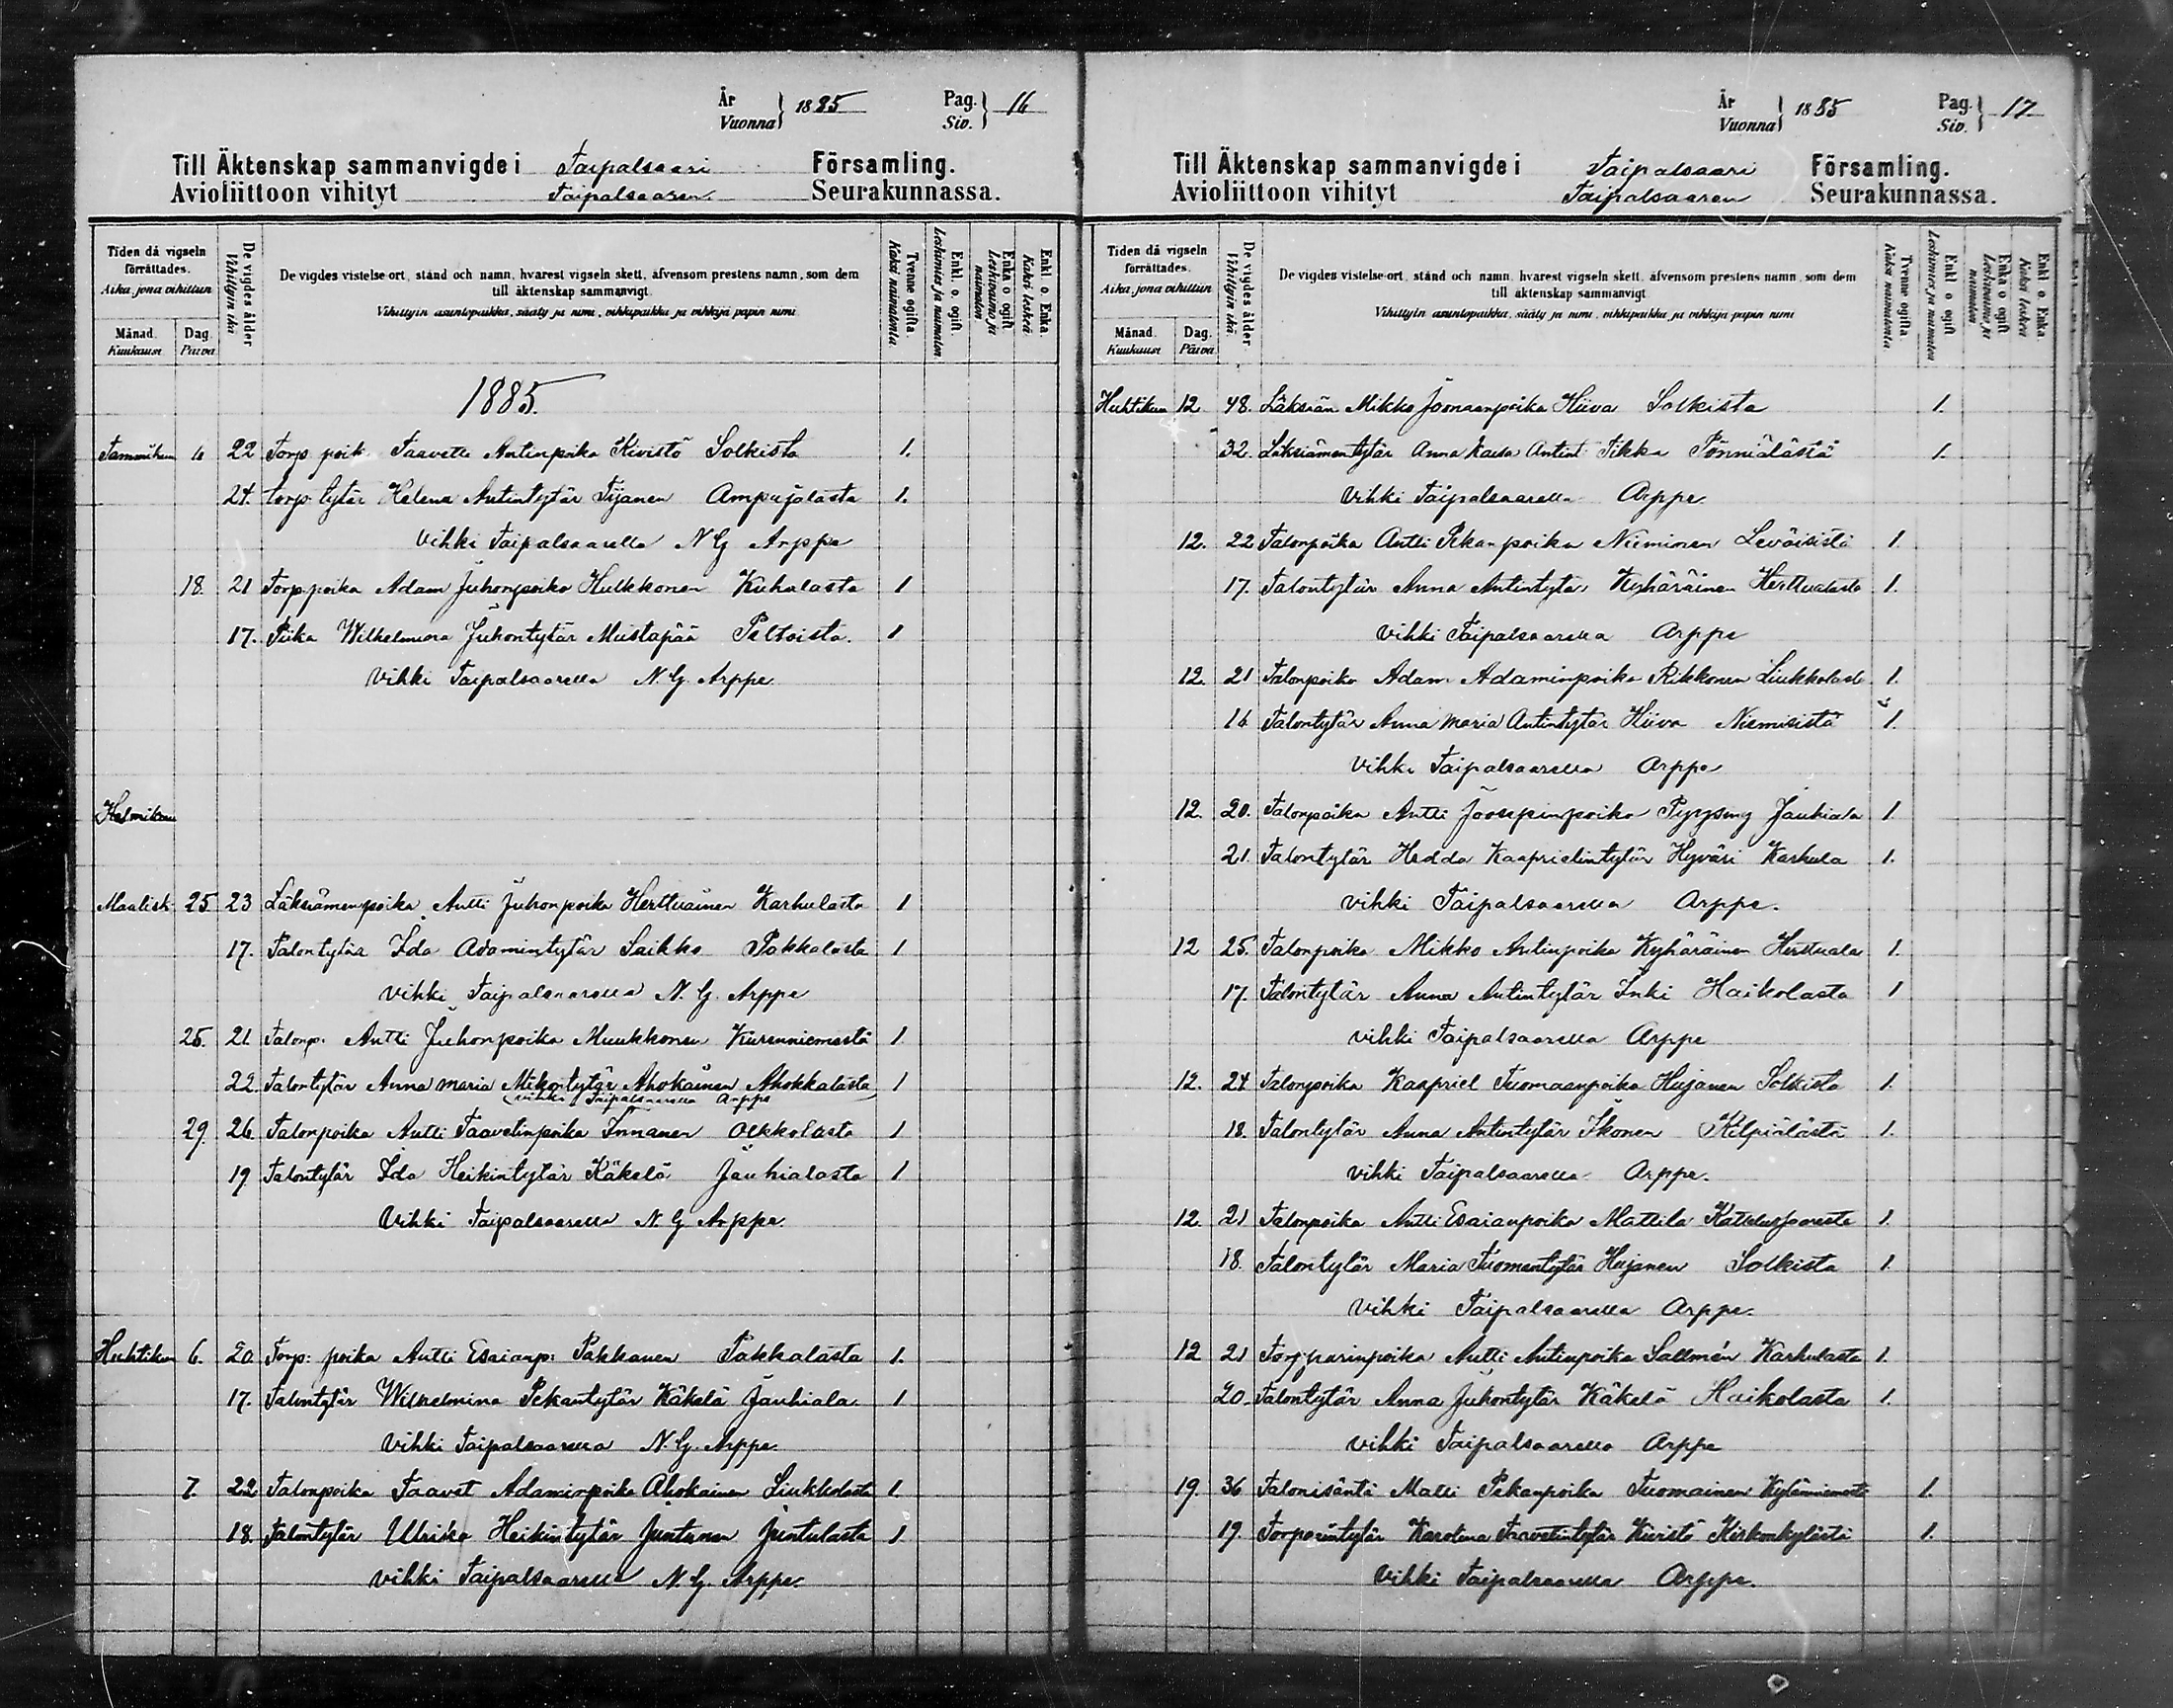 År
Vuonna } 1885 Pag.
Siv. } 16
Till Äktenskap sammanvigde i Taipalsaari Församling.
Avioliittoon vihityt Taipalsaaren Seurakunnassa.
Tiden då vigseln förrättades.
Aika, jona vihittiin
Månad. Kuukausi
Dag. Päivä
De vigdes ålder
Vihittyin ikä
De vigdes vistelse-ort, stånd och namn, hvarest vigseln skett, äfvensom prestens namn, som dem
till äktenskap sammanvigt.
Vihittyin asuntopaikka, sääty ja nimi, vihkipaikka ja vihkijä papin nimi
Tvenne ogifta.
Kaksi naimatonta
Enkl. o. ogift.
Leskimies ja naimaton
Enka o ogift
Leskivaimo ja naimaton
Enkl. o. Enka.
Kaksi leskeä
1885.
Tammikuu 6 22 Torp. poik. Taavetti Antinpoika Kivistö Solkista 1.
24. torp. tytär Helena Antintytär Tijanen Ampujalasta 1.
Vihki Taipalsaarella N G Arppe
18. 21 Torp. poika Adam Juhonpoika Hulkkonen Kuhalasta 1
17. Piika Wilhelmina Juhontytär Mustapää Peltoista. 1
Vihki Taipalsaarella N. G. Arppe
Helmikuu
Maalisk. 25 23 Läksiämenpoika Antti Juhonpoika Herttuainen Karhulasta 1
17. Talontytär Ida Adamintytär Saikko Pakkalasta 1
Vihki Taipalsaarella N. G. Arppe
25. 21. Talonp. Antti Juhonpoika Muukkonen Kurenniemestä 1
22. Talontytär Anna Maria Mikontytär Ahokainen Ahokkalasta 1
(vihki Taipalsaarella Arppe)
29. 26. Talonpoika Antti Taavetinpoika Innanen Olkkolasta 1
19 Talontytär Ida Heikintytär Käkelä Jauhialasta 1
Vihki Taipalsaarella N. G Arppe.
Huhtikuu 6. 20. Torp: poika Antti Esaianp: Pakkanen Pakkalasta 1.
17. Talontytär Wilhelmina Pekantytär Käkelä Jauhiala 1
Vihki Taipalsaarella N. G. Arppe.
7. 22 Talonpoika Taavet Adaminpoika Ahokainen Liukkolasta 1.
18. Talontytär Ulrika Heikintytär Juntunen Jintulasta 1.
vihki Taipalsaarella N. G. Arppe.
År
Vuonna } 1885 Pag.
Siv. } 17
Till Äktenskap sammanvigde i Taipalsaari Församling.
Avioliittoon vihityt Taipalsaaren Seurakunnassa.
Tiden då vigseln förrättades.
Aika, jona vihittiin
Månad. Kuukausi
Dag. Päivä
De vigdes ålder.
Vihittyin ikä
De vigdes vistelse-ort, stånd och namn, hvarest vigseln skett, äfvensom prestens namn, som dem
till äktenskap sammanvigt
Vihittyin asuntopaikka, sääty ja nimi, vihkipaikka ja vihkijä papin nimi
Tvenne ogifta.
Kaksi naimatonta
Enkl o ogift
Leskimies ja naimaton
Enka o ogift
Leskivaimo ja naimaton
Enkl. o. Enka.
Kaksi leskeä
Huhtikuu 12. 48. Läksiän Mikko Joonaanpoika Hiiva Solkista 1.
32. Läksiämentytär Anna Kaisa Antint Tikka Pönniälästä 1.
Vihki Taipalsaarella Arppe
12. 22 Talonpoika Antti Pekanpoika Nieminen Leväisistä 1.
17. Talontytär Anna Antintytär Kyhäräinen Herttualasta 1.
Vihki Taipalsaarella Arppe
12. 21 Talonpoika Adam Adaminpoika Rikkonen Liukkolasta 1.
16 Talontytär Anna Maria Antintytär Hiiva Niemisistä 1.
Vihki Taipalsaarella Arppe
12. 20. Talonpoika Antti Joosepinpoika Pyysing Jauhiala 1
21. Talontytär Hedda Kaaprielintytär Hyväri Karhula 1.
Vihki Taipalsaarella Arppe.
12 25. Talonpoika Mikko Antinpoika Kyhäräinen Herttuala 1.
17. Talontytär Anna Antintytär Inki Haikolasta 1
vihki Taipalsaarella Arppe
12. 24 Talonpoika Kaapriel Tuomaanpoika Hujanen Solkista 1.
18. Talontytär Anna Antintytär Ikonen Kilpiälästä 1.
Vihki Taipalsaarella Arppe.
12. 21 Talonpoika Antti Esaianpoika Mattila 1.
18. Talontytär Maria Tuomantytär Hujanen Solkista 1.
Vihki Taipalsaarella Arppe.
12 21 Torpparinpoika Antti Antinpoika Sallmén Karhulasta 1.
20. Talontytär Anna Juhontytär Käkelä Haikolasta 1.
Vihki Taipalsaarella Arppe
19. 36 Talonisäntä Matti Pekanpoika Tuomainen Kyläniemestä 1.
19. Torparintytär Karolina Taavetintytär Kivistö Kirkonkylästä 1.
Vihki Taipalsaarella Arppe.